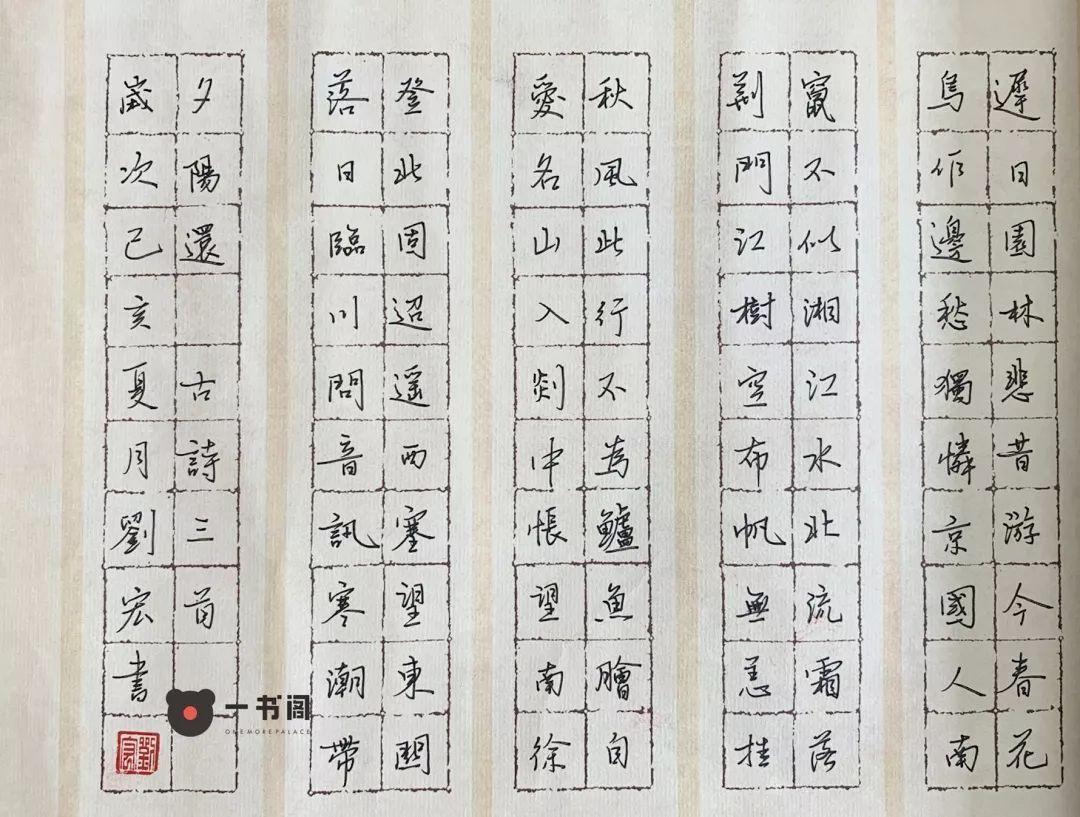 遲日園林悲昔游今春花
鳥作邊愁獨憐京國人南
竄不似湘江水北流霜落
荆門江樹空布帆無恙挂
秋風此行不為鱸魚膾自
愛名山入剡中悵望南徐
登北固迢遥西塞望東關
落日臨川問音訊寒潮帶
夕陽還 古詩三首
歲次己亥夏月劉宏書
劉宏
一书阁
ONE MORE PALACE